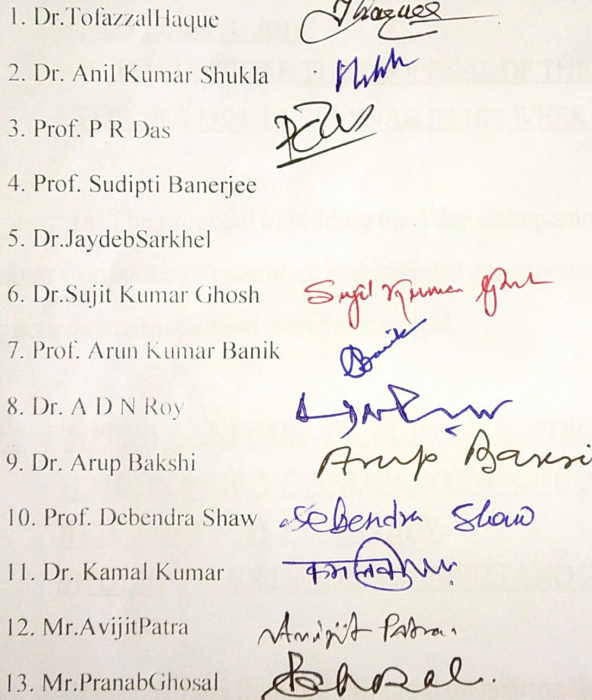 1. Dr.TofazzalHaque Jhaquee
2. Dr. Anil Kumar Shukla
3. Prof. P R Das
4. Prof. Sudipti Banerjee
5. Dr.JaydebSarkhel
6. Dr.Sujit Kumar Ghosh Sujit Kumar Ghosh
7. Prof. Arun Kumar Banik Banik
8. Dr. A D N Roy
9. Dr. Arup Bakshi Arup Baksi
10. Prof. Debendra Shaw Debendra Shaw
11. Dr. Kamal Kumar
12. Mr.AvijitPatra Avijit Patra.
13. Mr.PranabGhosal Ghosal.